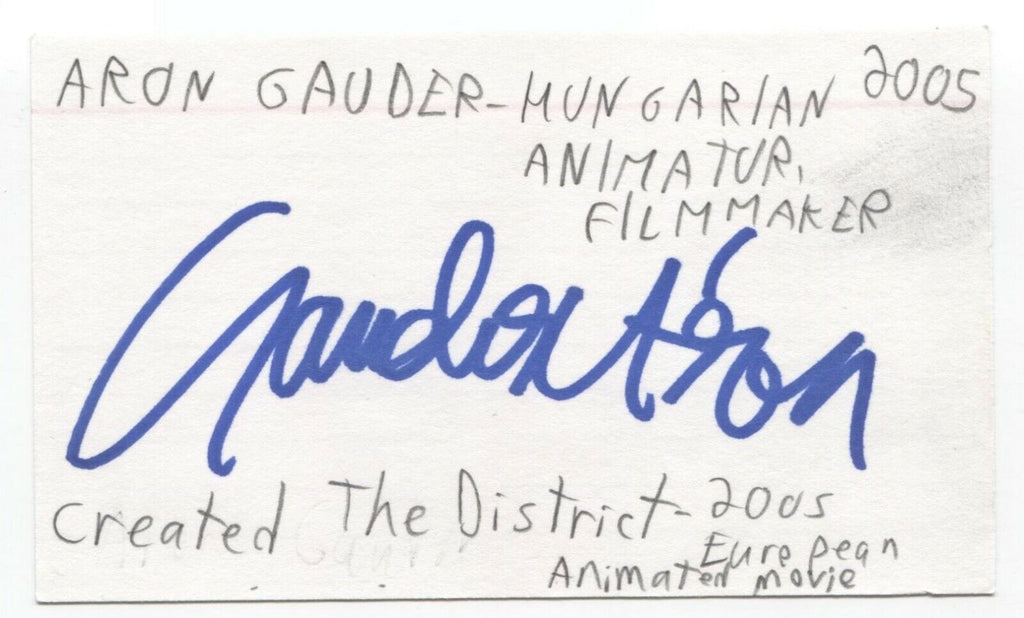 ARON GAUDER-HUNGARIAN 2005
ANIMATOR,
FILMMAKER
Gauder Áron
Created The District-2005
European
Animated movie